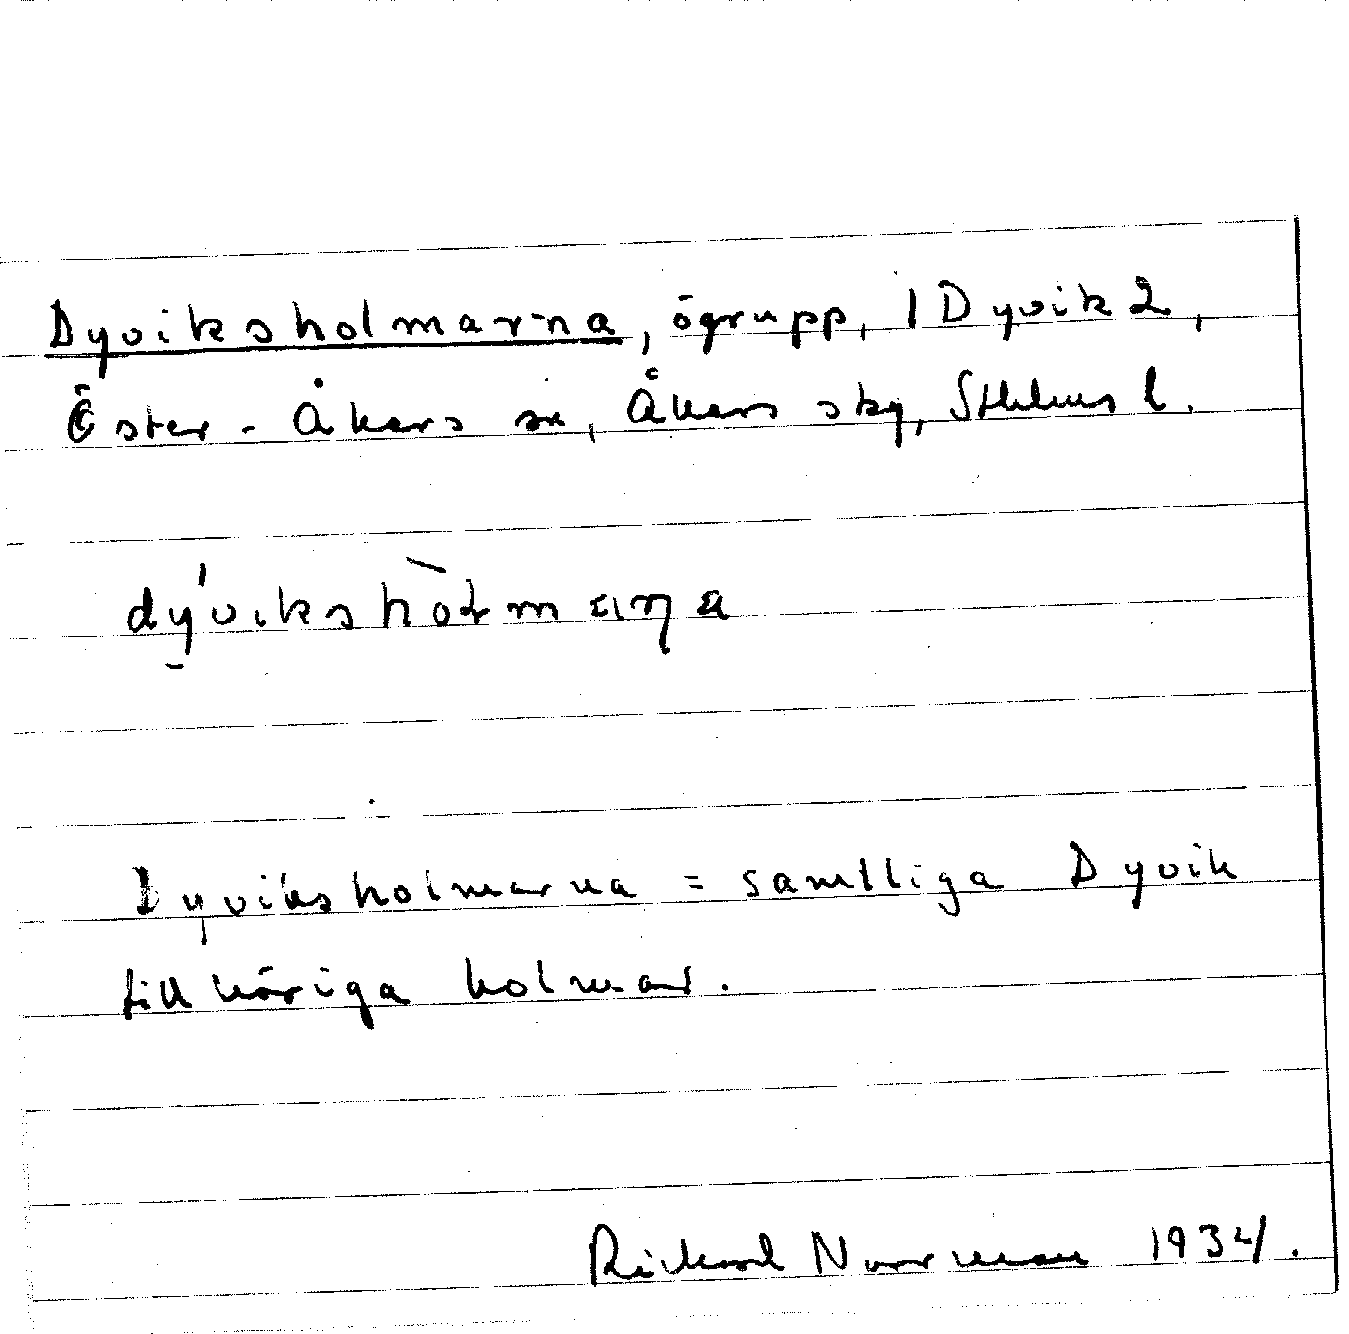 Dyviksholmarna, ögrupp, 1 Dyvik 2,
Öster-Åkers sn, Åkers skg, Sthlms l.
dý̱vikshòɫmaɳa
Dyviksholmarna = samtliga Dyvik
tillhöriga holmar.
Rickard Norrman 1934.